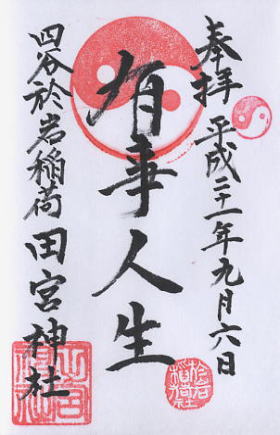 奉拝 平成二十一年九月六日
有事人生
四谷於岩稲荷 田宮神社